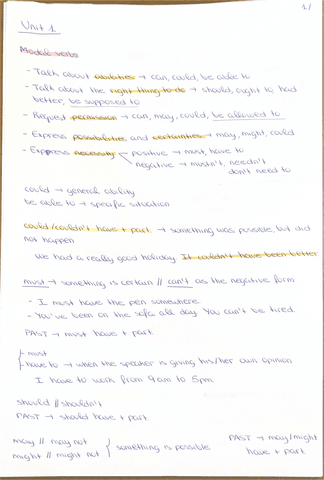 1/
Unit 1
Modal verbs
- Talk about abilities → can, could, be able to
- Talk about the right thing to do → should, ought to, had
better, be supposed to
- Request permission → can, may, could, be allowed to
- Express possibilities and certainties → may, might, could
- Express necessity positive → must, have to
negative → mustn't, needn't
don't need to
could → general ability
be able to → specific situation
could/couldn't have + part. → something was possible, but did
not happen
We had a really good holiday. It couldn't have been better
must → something is certain // can't as the negative form
- I must have the pen somewhere.
- You've been on the sofa all day. You can't be tired.
PAST → must have + part.
- must
have to → when the speaker is giving his/her own opinion
I have to work from 9am to 5pm
should // shouldn't
PAST → should have + part.
may // may not
might // might not
something is possible
PAST → may/might
have + part.